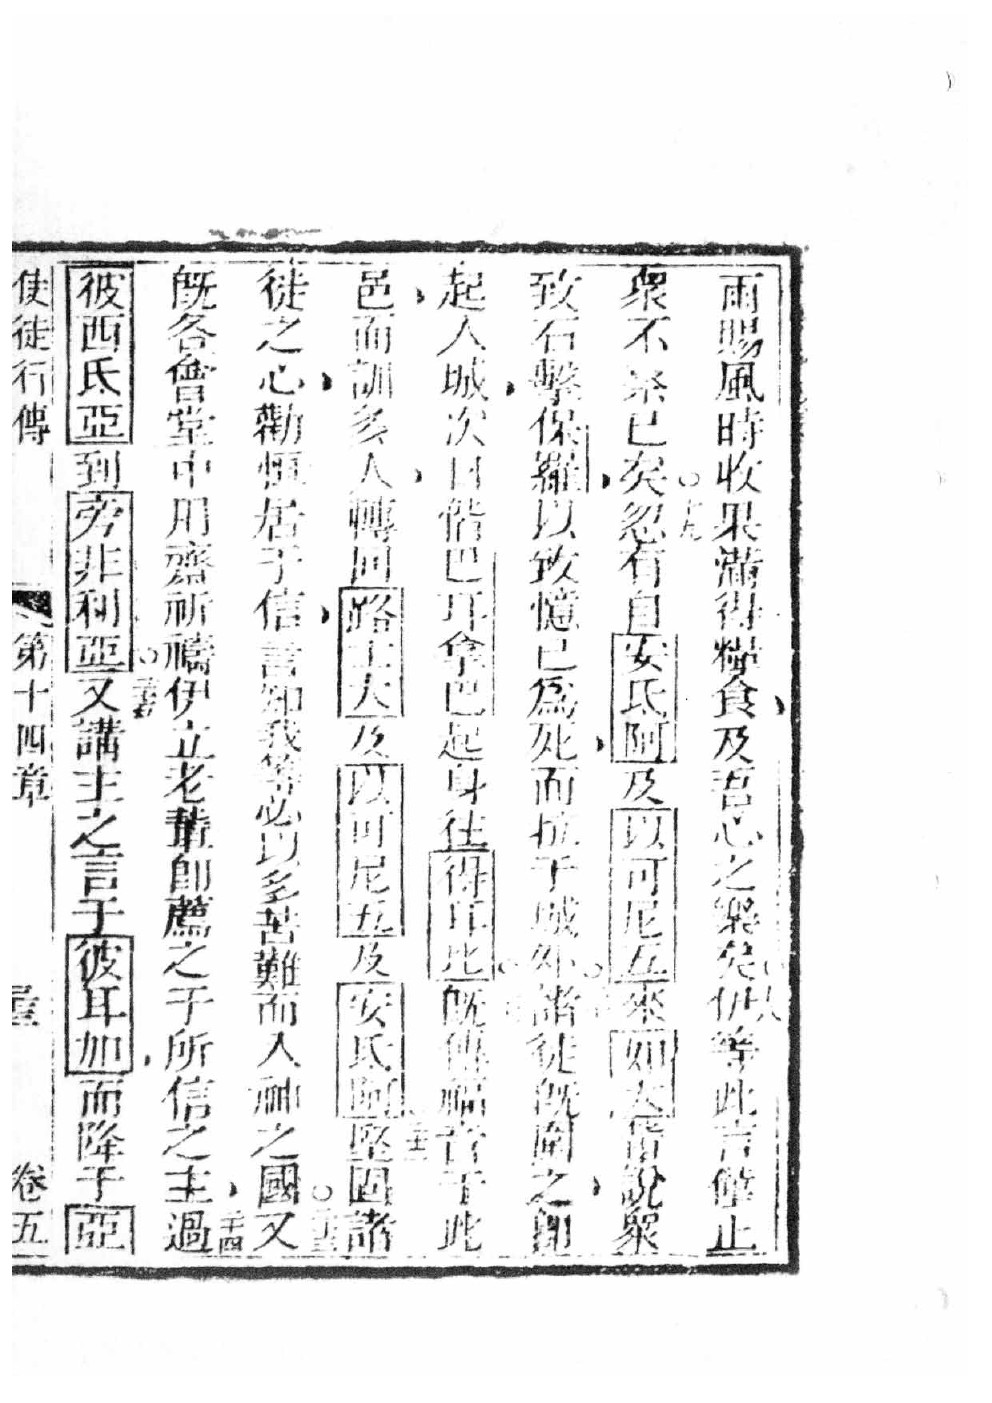 雨賜風時收果滿得糧食及吾心之樂矣○十八伊等此言僅止
眾不祭己矣○十九忽有自安氐阿及以可尼五來如大昔說眾
致石擊保羅以致憶已為死而拉于城外○二十諸徒既圍之即
起入城次日偕巴耳拿巴起身往得耳比○既傳福音于此
邑而訓多人轉回路士大及以可尼五及安氐阿二十二堅固諸
徒之心勸恒居于信言知我等必以多苦難而入神之國○二十三又
既各會堂中用齋祈禱伊立老輩即薦之于所信之主二十四過
彼西氐亞到旁非利亞○二十五又講主之言于彼耳加而降于亞
使徒行傳 第十四章 卷五